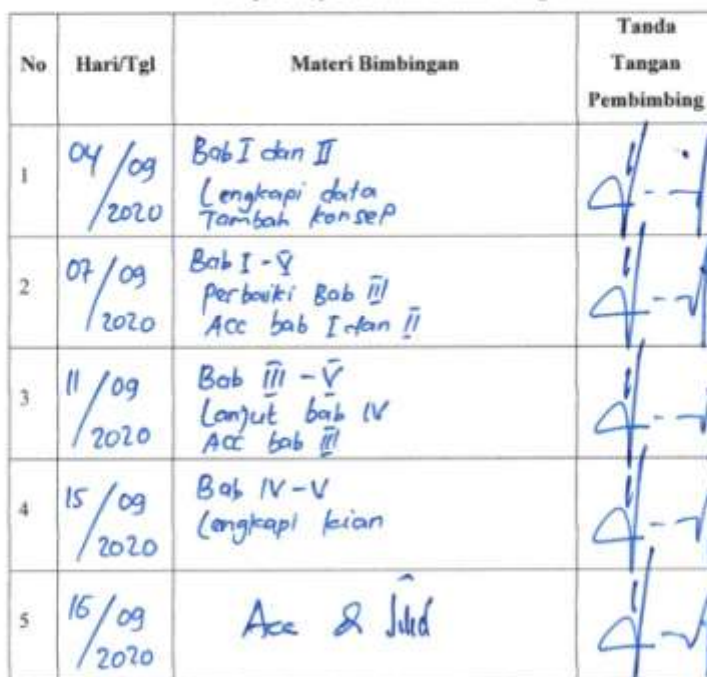 No Hari/Tgl Materi Bimbingan Tanda Tangan Pembimbing
1 04/09/2020 Bab I dan II
Lengkapi data
Tambah konsep
2 07/09/2020 Bab I - V
Perbaiki Bab III
Acc bab I dan II
3 11/09/2020 Bab III - V
Lanjut bab IV
Acc bab III
4 15/09/2020 Bab IV - V
Lengkapi
5 16/09/2020 Acc &